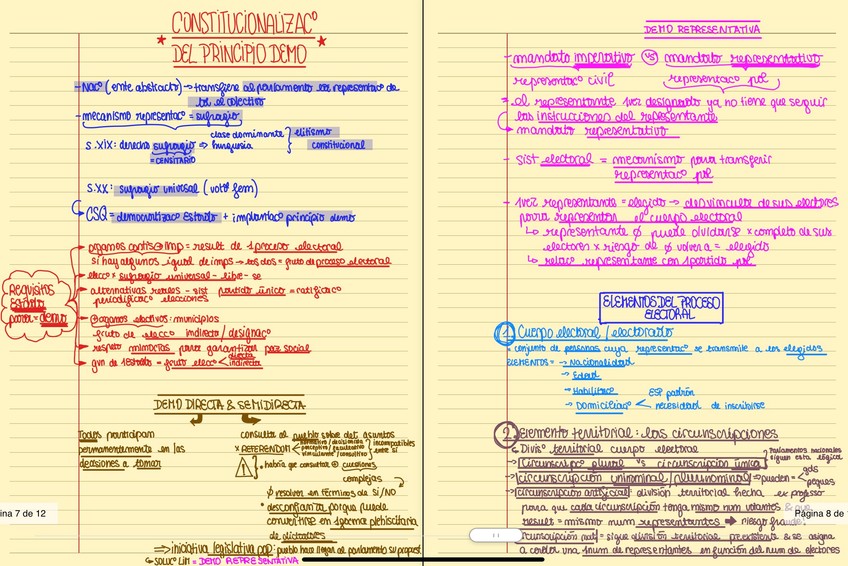 CONSTITUCIONALIZACº
* DEL PRINCIPIO DEMO *
- Nacº (ente abstracto) → transfiere al parlamento la representacº de
to el colectivo
- mecanismo representacº = sufragio
S.XIX: derecho sufragio ⇒ clase dominante burguesía } elitismo constitucional
= CENSITARIO
S.XX: sufragio universal (voto fem)
CSQ = democratizacº Estado + implantacº principio demo
Requisitos
Estado
para = demo
→ organos contis⊕imp = result de 1 proceso electoral
si hay algunos igual de imps → los dos = fruto de proceso electoral
→ elecc° x sufragio universal - libre - se
→ alternativas reales - sist partido único = ratificacº
periodificacº elecciones
→ organos electivos: municipios
fruto de elecc° indirecta / designacº
→ respeto minorías para garantizar paz social
→ gvn de 1 Estado = fruto elecc° < directa
indirecta
DEMO DIRECTA & SEMIDIRECTA
Todos participan
permanentemente en las
decisiones a tomar
consulta al pueblo sobre det. asuntos
x REFERENDUM
vinculante / consultivo
incompatibles entre sí
• habría que consultar ⊕ cuestiones
complejas
∅ resolver en términos de SI/NO
• desconfianza porque puede
convertirse en forma plebiscitaria
de dictadores
⇒ iniciativa legislativa pop: pueblo hace llegar al parlamento su propost
↳ solucº LIM = DEMO REPRESENTATIVA
ina 7 de 12
DEMO REPRESENTATIVA
- mandato imperativo VS mandato representativo
representacº civil representacº pol
= el representante 1 vez designado ya no tiene que seguir
las instrucciones del representante
→ mandato representativo
- sist electoral = mecanismo para transferir
representacº pol
- 1 vez representante = elegido → desvincula de sus electores
para representar el cuerpo electoral
↳ representante ∅ puede olvidarse x completo de sus
electores x riesgo de ∅ volver a = elegido
↳ relacº representante con 1 partido pol
ELEMENTOS DEL PROCESO
ELECTORAL
1 Cuerpo electoral / electorado
• conjunto de personas cuya representacº se transmite a los elegidos
ELEMENTOS = → Nacionalidad
→ Edad
→ Habilitacº
→ Domiciliacº < ESP padrón
necesidad de inscribirse
2 Elemento territorial: las circunscripciones
Divisº territorial cuerpo electoral
→ Circunscripcº plural vs circunscripción única
Parlamentos nacionales siguen esta lógica
→ circunscripción uninominal / plurinominal → pueden = < gds
peques
→ circunscripción artificial: división territorial hecha ex professo
para que cada circunscripción tenga mismo num votantes & que
result = mismo num representantes → riesgo fraude!
circunscripción nat = sigue división territorial preexistente & se asigna
a cada una 1 num de representantes en función del num de electores
Página 8 de 1